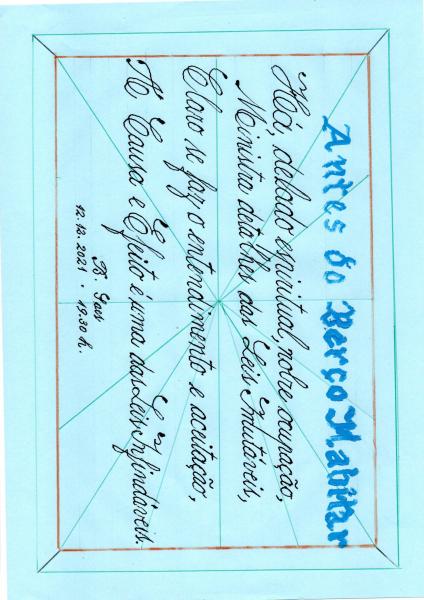 Antes do Berço Habitar
Há, de lado espiritual, nobre ocupação,
Ministra detalhes das Leis Imutáveis,
Claro se faz o entendimento e aceitação,
A Causa e Efeito é uma das Leis Infindáveis.
R. Goes
12.12.2021 . 19.30 h.